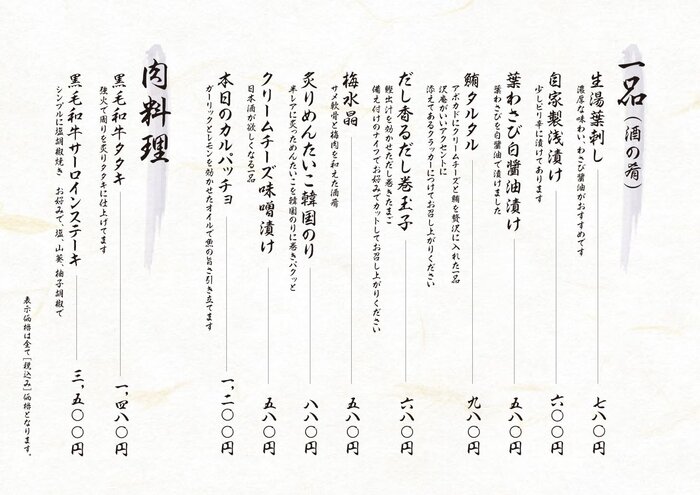 一品（酒の肴）
生湯葉刺し 七八〇円
濃厚な味わい、わさび醤油がおすすめです
自家製浅漬け 六〇〇円
少しピリ辛に漬けてあります
葉わさび白醤油漬け 五八〇円
葉わさびを白醤油で漬けました
鮪タルタル 九八〇円
アボカドにクリームチーズと鮪を贅沢に入れた一品
沢庵がいいアクセントに
添えてあるクラッカーにつけてお召し上がりください
だし香るだし巻玉子 六八〇円
鰹出汁を効かせただし巻きたまご
備え付けのナイフでお好みでカットしてお召し上がりください
梅水晶 五八〇円
サメ軟骨と梅肉を和えた酒肴
炙りめんたいこ韓国のり 八八〇円
半レアに炙っためんたいこを韓国のりに巻きパクッと
クリームチーズ味噌漬け 五八〇円
日本酒が欲しくなる一品
本日のカルパッチョ 一、二〇〇円
ガーリックとレモンを効かせたオイルで魚の旨さ引き立てます
肉料理
黒毛和牛タタキ 一、四八〇円
強火で周りを炙りタタキに仕上げてます
黒毛和牛サーロインステーキ 三、五〇〇円
シンプルに塩胡椒焼き お好みで、塩、山葵、柚子胡椒で
表示価格は全て［税込み］価格となります。